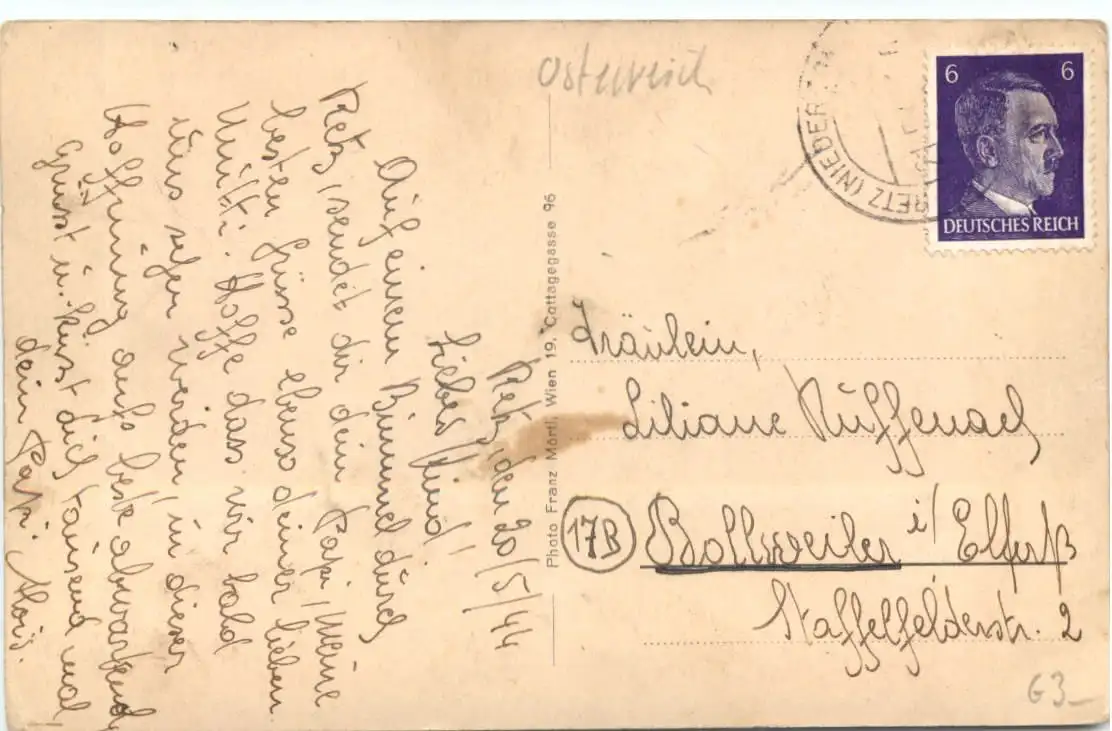 Österreich
6 6
DEUTSCHES REICH
RETZ (NIEDER
Retz, den 20/5/44
Liebes Kind!
Auf einem Bummel durch
Retz, sendet dir dein Papi, meine
besten Grüsse ebenso deiner lieben
Mutti. Hoffe dass wir bald
uns sehen werden, in dieser
Hoffnung aufs beste abwartend
Grüsst u. küsst dich tausend mal
dein Papi Aloÿs.
Photo Franz Mörtl, Wien 19, Cottagegasse 96
Fräulein,
Liliane Ruffenach
17B Bollweiler i/ Elsaß
Staffelfelderstr. 2
G3_